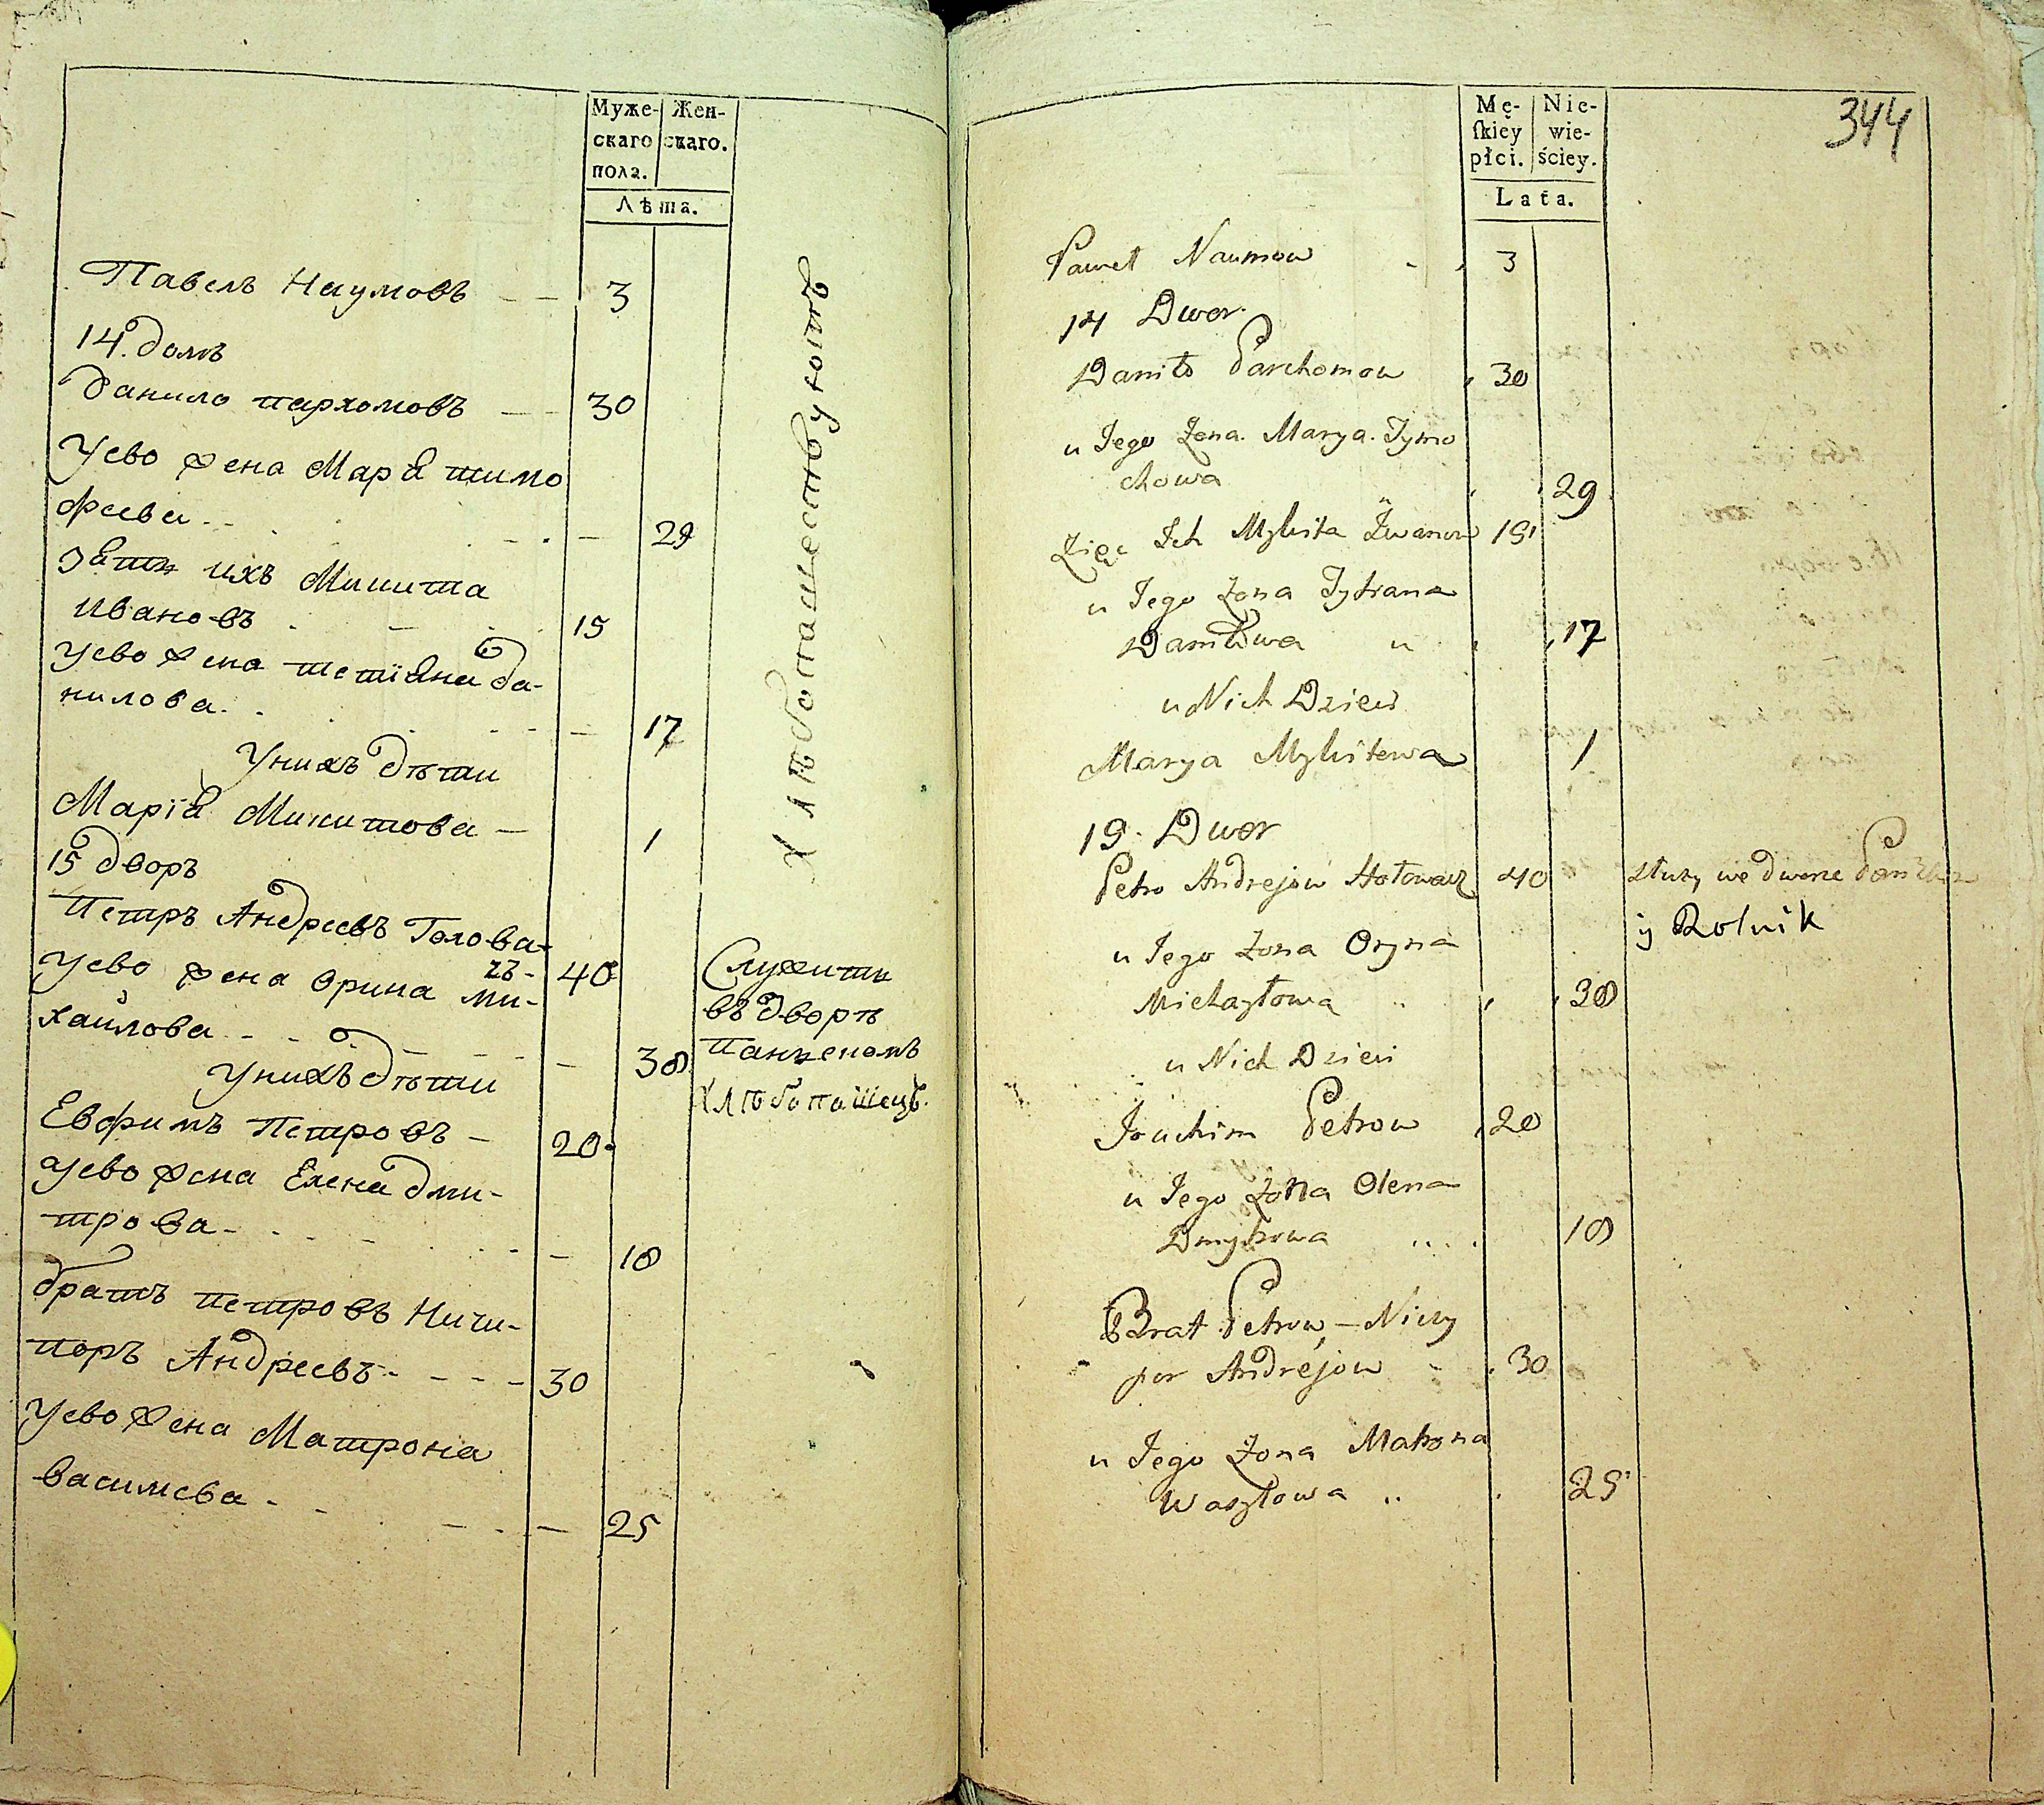 Муже- Жен-
скаго скаго.
пола.
Лѣта.
Павелъ Наумовъ — — 3
14. домъ
данило пархомовъ — — 30
Уево жена Маріа тимо
феева — 29
Зять ихъ Микита
Ивановъ 15
Уево жена тетіана да-
нилова. — 17
Унихъ дѣти
Маріа Микитова — 1
15 дворъ
Петръ Андреевъ Голова-
чъ- 40
Уево жена Орина Ми-
хаилова — 38
Унихъ дѣти
Евфимъ Петровъ — 20.
Уево жена Елена дми-
трова — 18
братъ петровъ Ничи-
поръ Андреевъ 30
Уево жена Матрона
василиева — 25
Хлѣбопашествуютъ
Служитъ
въ дворѣ
панскомъ
Хлѣбопашецъ.
344
Mę- Nie-
ſkiey wie-
płci. ściey.
Lata.
Paweł Naumow 3
14 Dwor.
Daniło Parchomow 30
u Jego Zona. Marya. Tymo
chowa 29
Zięć Ich Mykita Iwanow 15
u Jego Zona Tytiana
Daniłowa 17
u Nich Dzieci
Marya Mykitowa 1
15. Dwor
Petro Andrejow Hołowacz 40
u Jego Zona Oryna
Michayłowa 38
u Nich Dzieci
Joachim Petrow 20
u Jego Zona Olena
Dmytrowa 18
Brat Petrow, — Niczy
por Andrejow 30
u Jego Zona Matrona
Wasylowa 25
służy we dworze
ÿ Rolnik